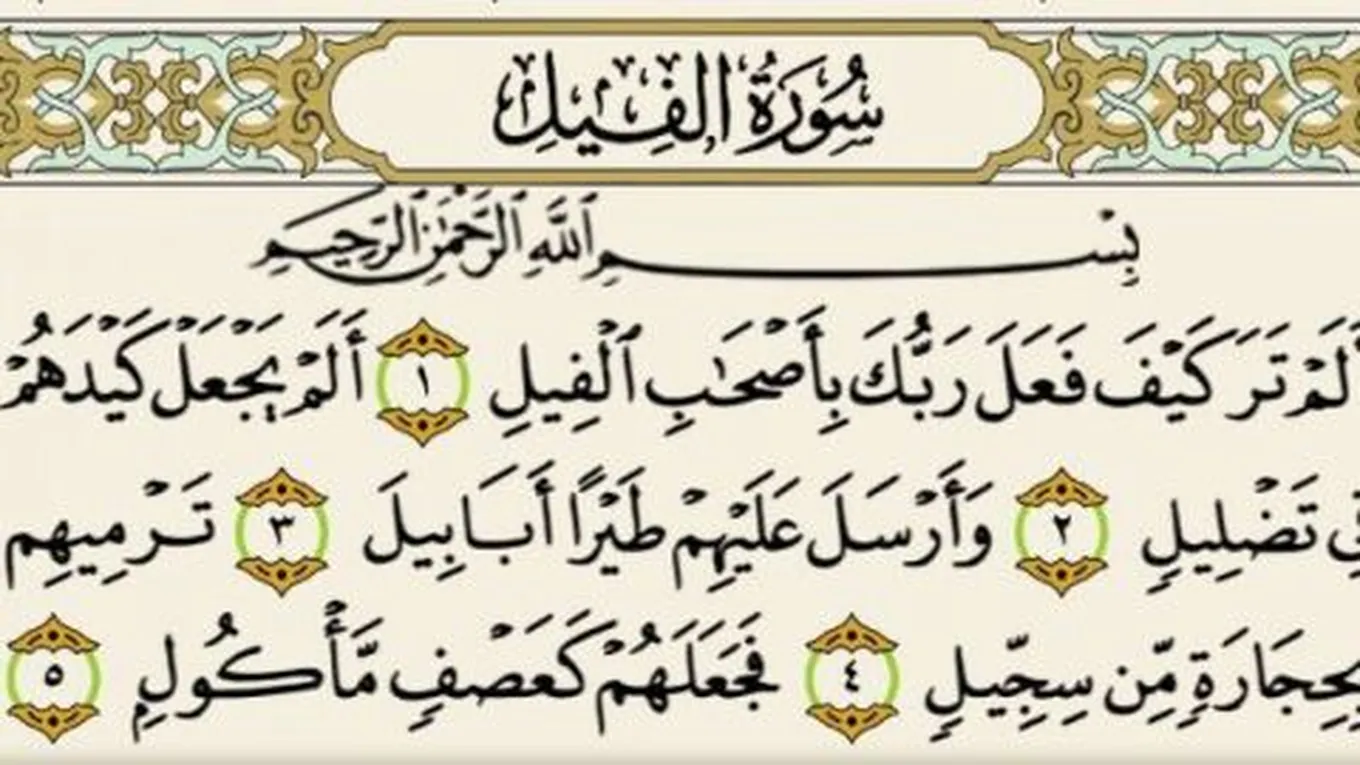 سُورَةُ الفِيلِ
بِسْمِ ٱللَّهِ ٱلرَّحْمَٰنِ ٱلرَّحِيمِ
أَلَمْ تَرَ كَيْفَ فَعَلَ رَبُّكَ بِأَصْحَٰبِ ٱلْفِيلِ ١ أَلَمْ يَجْعَلْ كَيْدَهُمْ
فِى تَضْلِيلٍ ٢ وَأَرْسَلَ عَلَيْهِمْ طَيْرًا أَبَابِيلَ ٣ تَرْمِيهِم
بِحِجَارَةٍ مِّن سِجِّيلٍ ٤ فَجَعَلَهُمْ كَعَصْفٍ مَّأْكُولٍۭ ٥